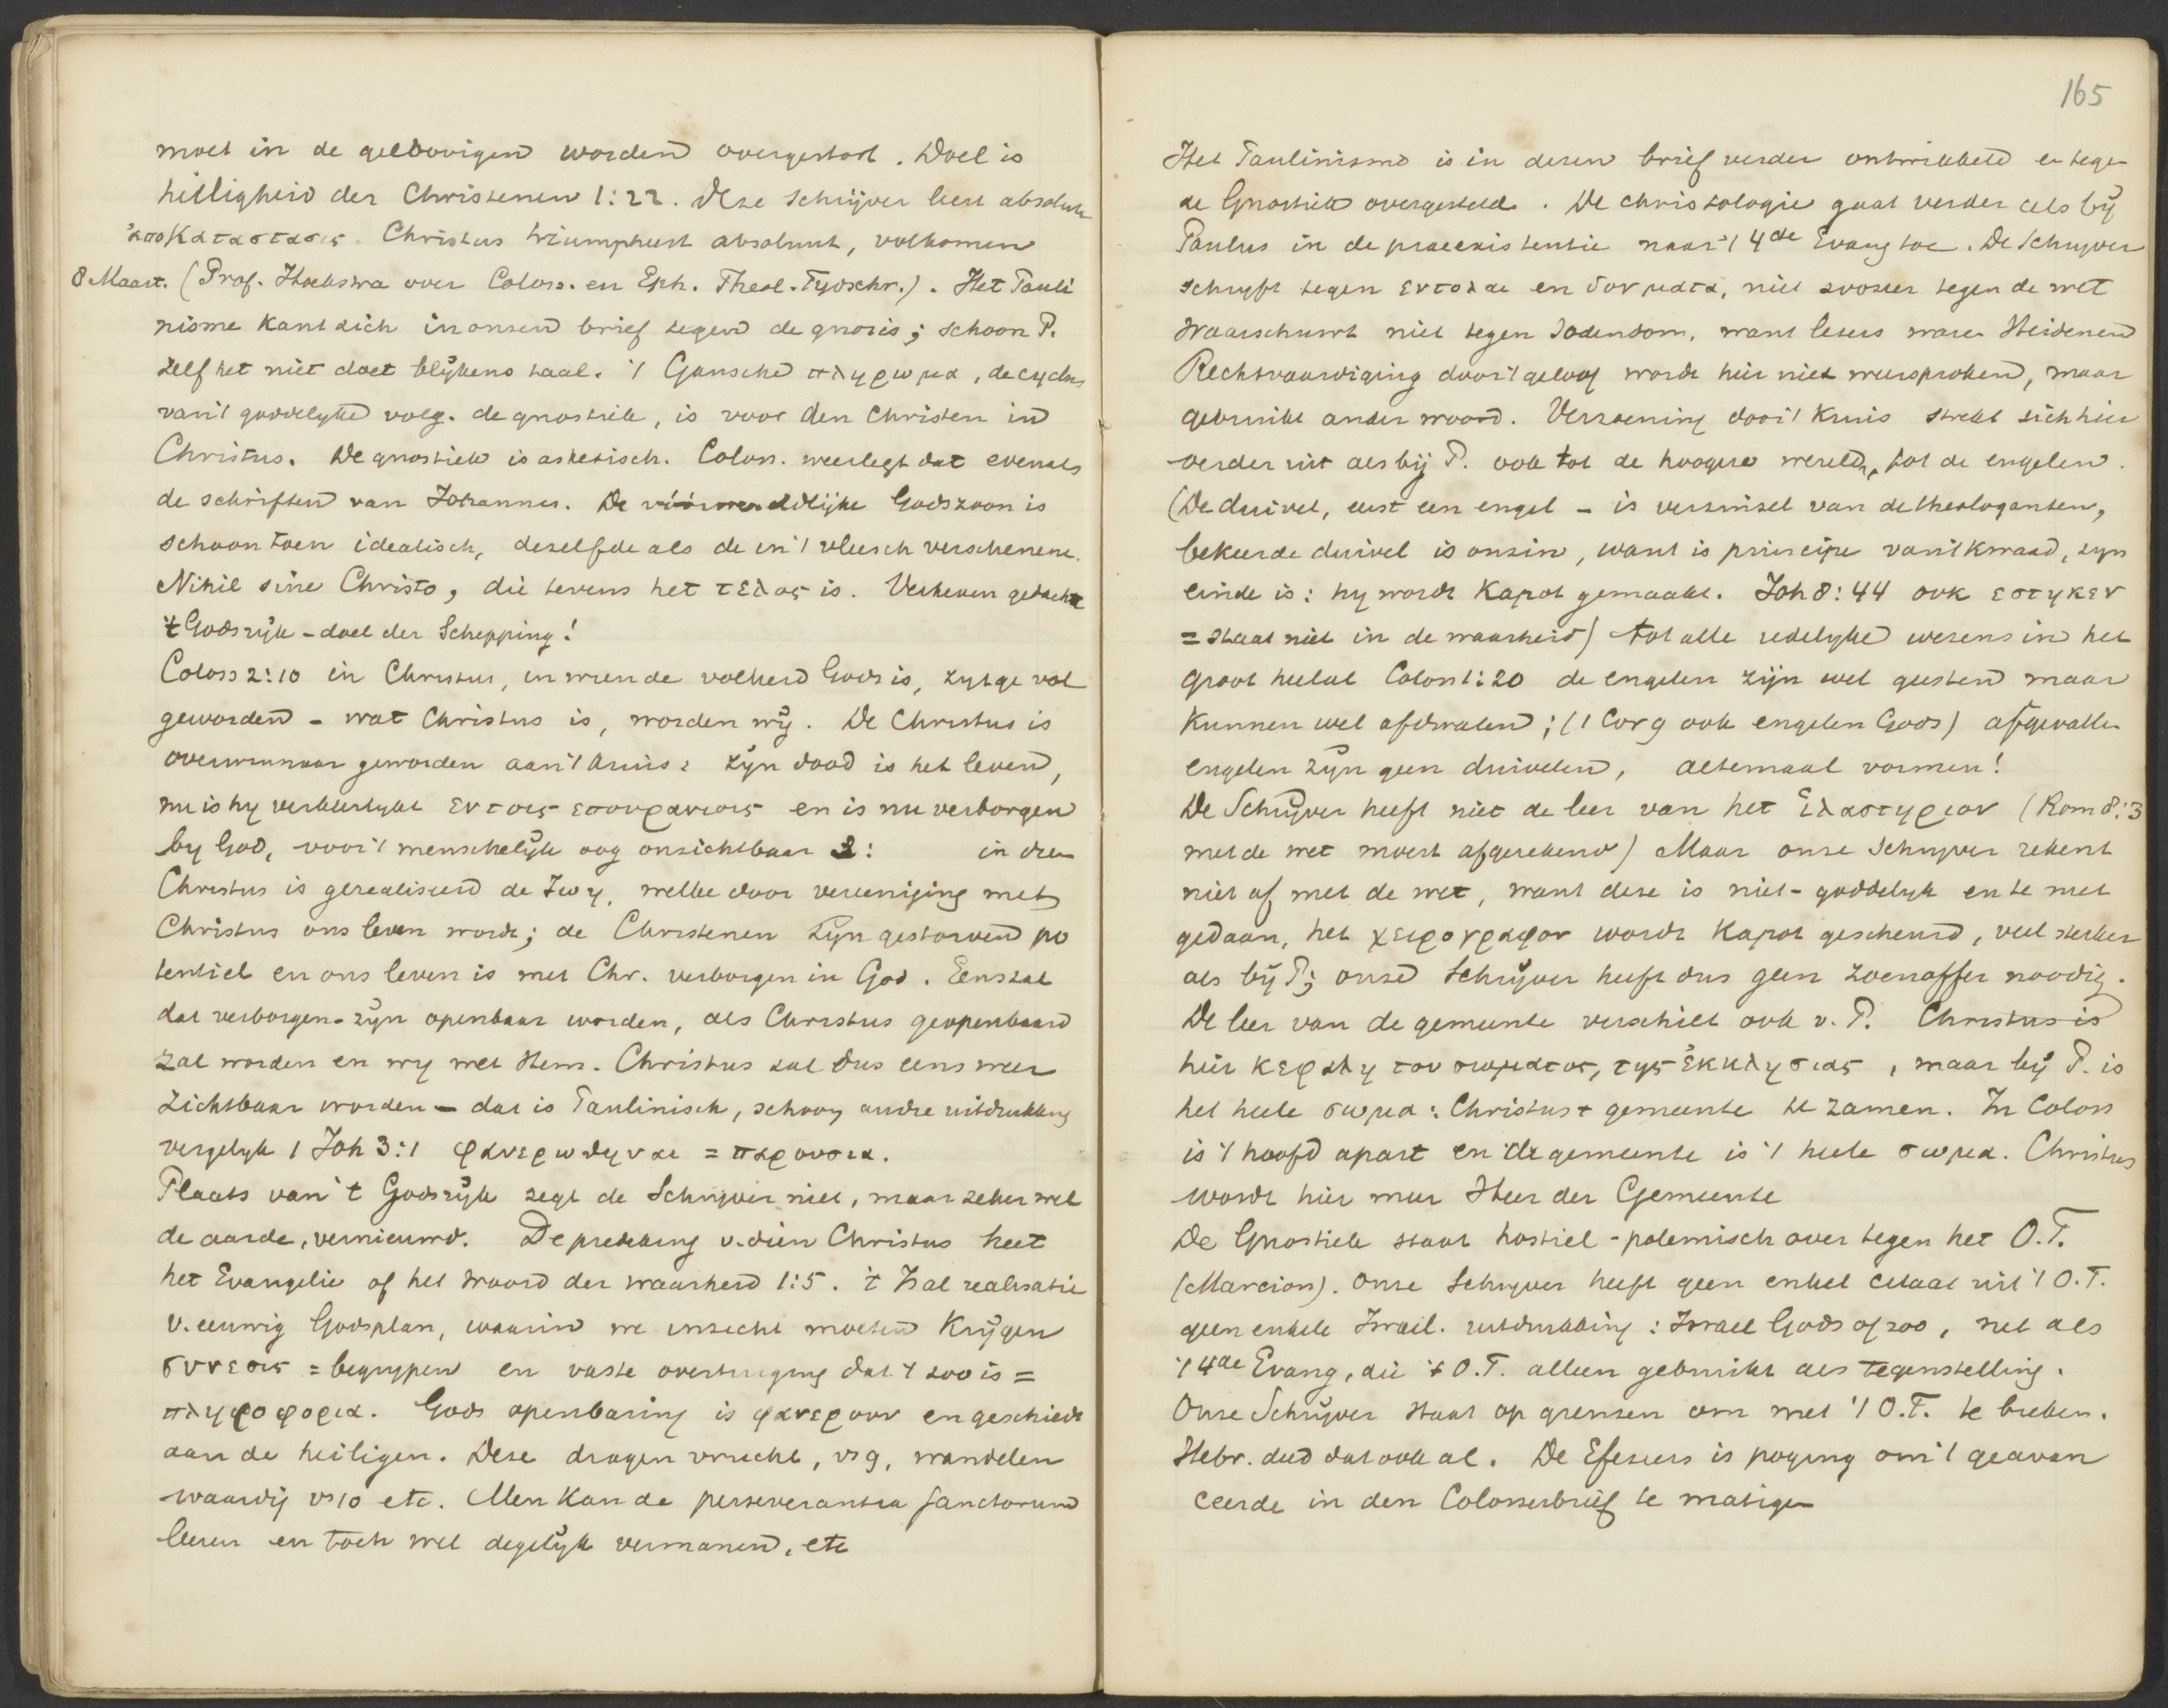 moet in de geloovigen worden overgestort. Doel is
heiligheid der Christenen 1:22. Deze schrijver leert absolute
ἀποκαταστασις. Christus triumpheert absoluut, volkomen
8 Maart. (Prof. Hoekstra over Coloss. en Eph. Theol. Tydschr.). Het Pauli
nisme kant zich in onzen brief tegen de gnosis; schoon P.
zelf het niet doet blykens taal. 't Gansche πληρωμα, de cyclus
van 't goddelyke volg. de gnostiek, is voor den Christen in
Christus. De gnostiek is asketisch. Coloss. weerlegt dat evenals
de schriften van Johannes. De vóórwereldlijke Godszoon is
schoon toen idealisch, dezelfde als de in 't vleesch verschenene.
Nihil sine Christo, die tevens het τελος is. Verheven gedachte
't Godsrijk - doel der Schepping!
Coloss 2:10 in Christus, in wien de volheid Gods is, zyt ge vol
geworden - wat Christus is, worden wij. De Christus is
overwinnaar geworden aan 't kruis: zijn dood is het leven,
nu is hy verheerlykt εν τοις επουρανιοις en is nu verborgen
by God, voor 't menschelijk oog onzichtbaar 3: in dien
Christus is gerealiseerd de ζωη, welke door vereeniging met
Christus ons leven wordt; de Christenen zijn gestorven po
tentieel en ons leven is met Chr. verborgen in God. Eens zal
dat verborgen-zijn openbaar worden, als Christus geopenbaard
zal worden en wy met Hem. Christus zal dus eens weer
zichtbaar worden - dat is Paulinisch, schoon andre uitdrukking
vergelyk 1 Joh 3:1 φανερωθηναι = παρουσια.
Plaats van 't Godsrijk zegt de Schrijver niet, maar zeker wel
de aarde, vernieuwd. De prediking v. dien Christus heet
het Evangelie of het woord der waarheid 1:5. 't Is al realisatie
v. eeuwig Godsplan, waarin we inzicht moeten krijgen
συνεσις = begrypen en vaste overtuiging dat 't zoo is =
πληροφορια. Gods openbaring is φανερουν en geschiedt
aan de heiligen. Deze dragen vrucht, vs 9, wandelen
waardij vs 10 etc. Men kan de perseverantia sanctorum
leeren en toch wel degelijk vermanen, etc
165
Het Paulinisme is in dezen brief verder ontwikkeld en tegen
de Gnostiek overgesteld. De christologie gaat verder als bij
Paulus in de praeexistentie naar 't 4de Evang toe. De Schryver
schryft tegen εντολαι en δογματα, niet zoozeer tegen de wet
Waarschuwt niet tegen Jodendom, want lezers waren Heidenen
Rechtvaardiging door 't geloof wordt hier niet weersproken, maar
gebruikt ander woord. Verzoening door 't kruis strekt zich hier
verder uit als bij P. ook tot de hoogere wereld, tot de engelen.
(De duivel, eerst een engel - is verzinsel van de theologanten,
bekeerde duivel is onzin, want is principe van 't kwaad, zyn
einde is: hy wordt kapot gemaakt. Joh 8:44 οὐκ εστηκεν
= staat niet in de waarheid) tot alle redelyke wezens in het
groot heelal Coloss 1:20 de engelen zijn wel geesten maar
kunnen wel afdwalen; (1 Cor 9 ook engelen Gods) afgevallen
engelen zijn geen duivelen, altemaal vormen!
De Schrijver heeft niet de leer van het ἱλαστηριον (Rom 8:3
met de wet moest afgerekend) Maar onze Schryver rekent
niet af met de wet, want deze is niet-goddelyk en te niet
gedaan, het χειρογραφον wordt kapot gescheurd, veel sterker
als bij P; onze Schrijver heeft dus geen zoenoffer noodig.
De leer van de gemeente verschilt ook v. P. Christus is
hier κεφαλη του σωματος, της ἐκκλησιας, maar bij P. is
het heele σωμα: Christus + gemeente te zamen. In Coloss
is 't hoofd apart en de gemeente is 't heele σωμα. Christus
wordt hier meer Heer der Gemeente
De Gnostiek staat hostiel-polemisch over tegen het O.T.
(Marcion). Onze Schryver heeft geen enkel citaat uit 't O.T.
geen enkele Israel. uitdrukking: Israel Gods of zoo, net als
't 4de Evang, die 't O.T. alleen gebruikt als tegenstelling.
Onze Schrijver staat op grenzen om met 't O.T. te breken.
Hebr. deed dat ook al. De Efeziers is poging om 't geavan
ceerde in den Colosserbrief te matigen